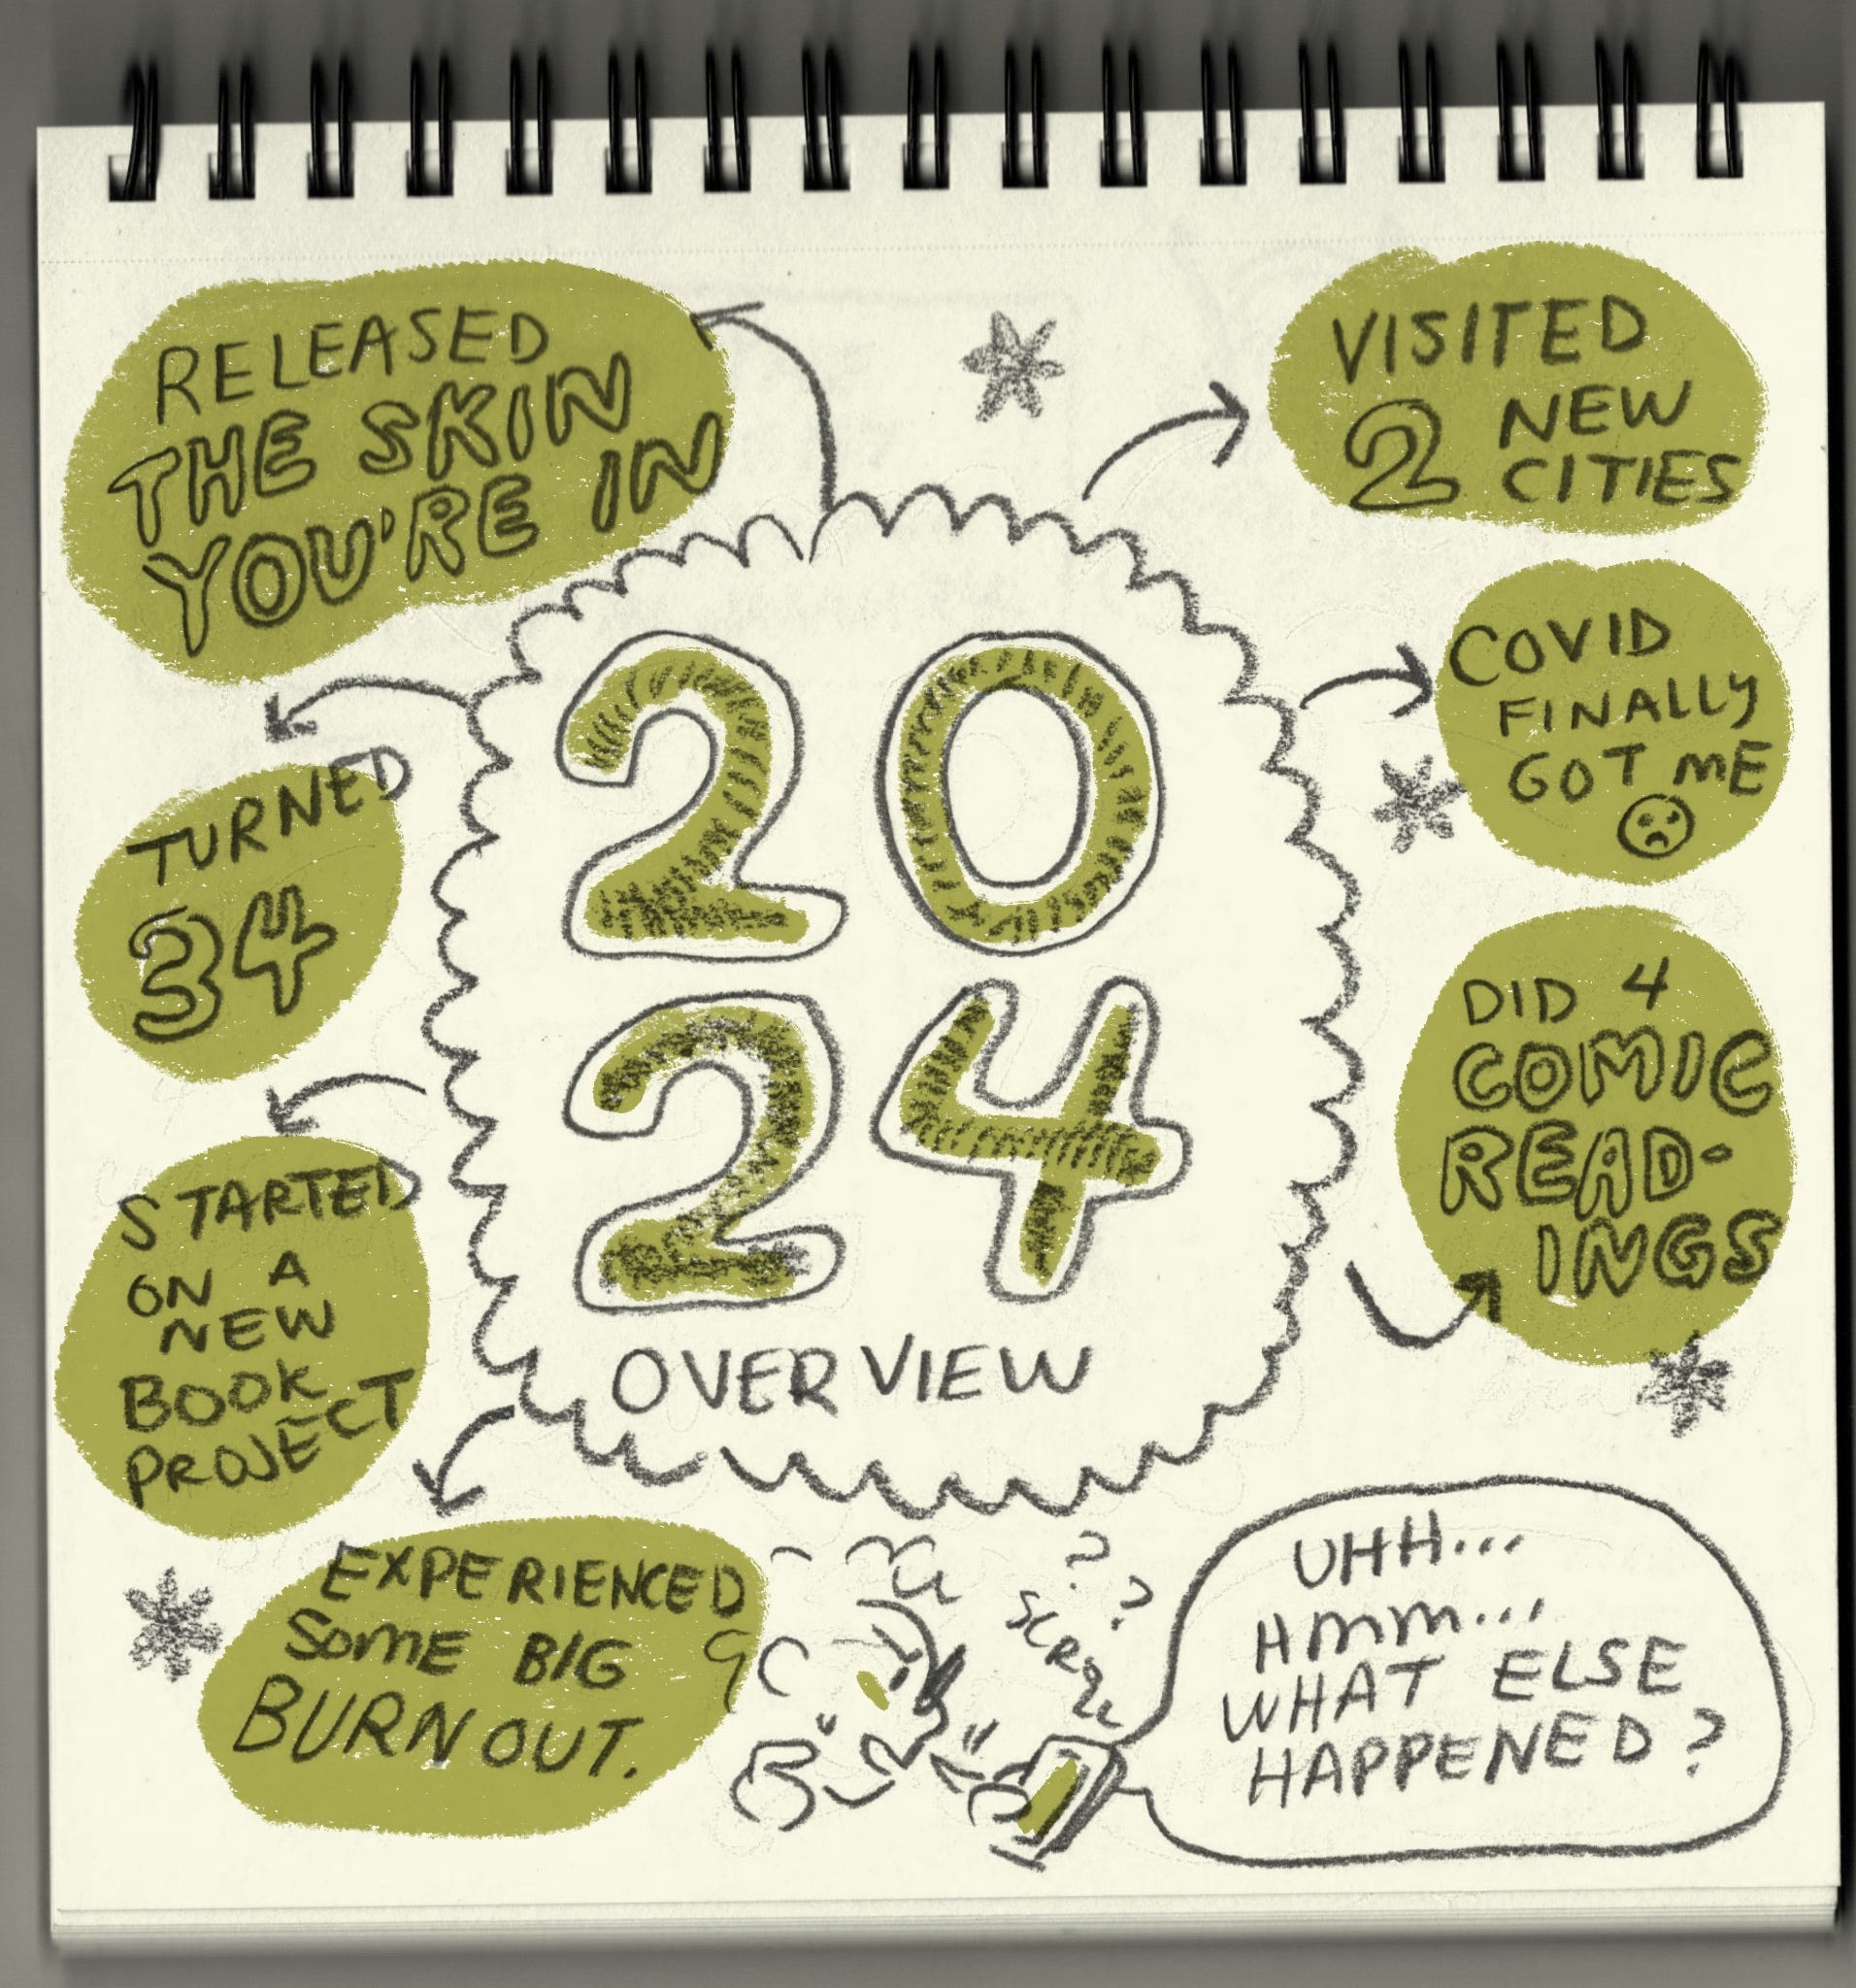 RELEASED
THE SKIN
YOU'RE IN
VISITED
2 NEW
CITIES
COVID
FINALLY
GOT ME
TURNED
34
20
24
OVERVIEW
DID 4
COMIC
READ-
INGS
STARTED
ON A
NEW
BOOK
PROJECT
EXPERIENCED
SOME BIG
BURNOUT.
? ?
UHH...
HMM...
WHAT ELSE
HAPPENED?